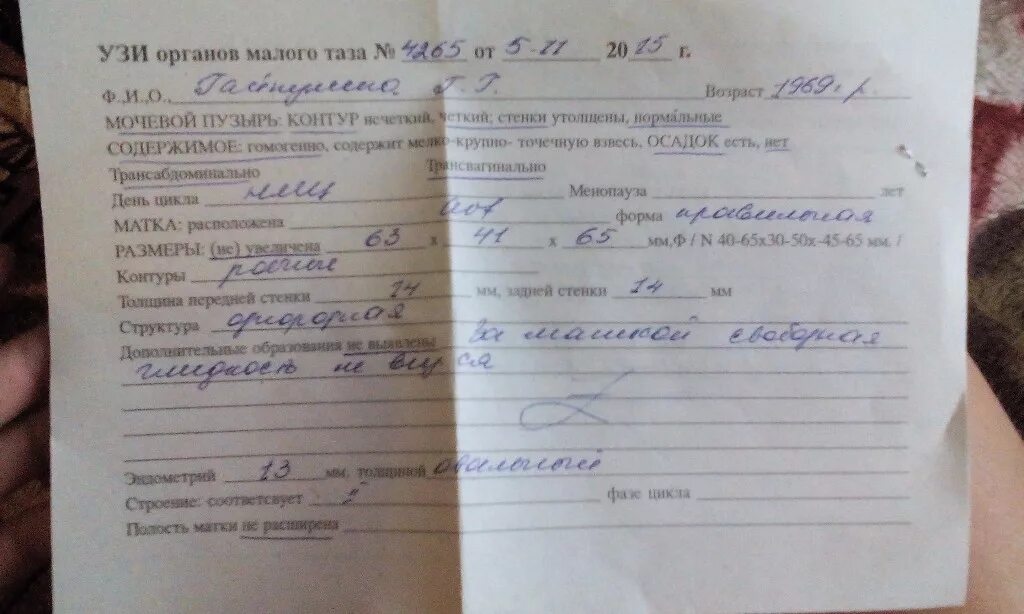 УЗИ органов малого таза № 4265 от 5-11 2015 г.
Ф.И.О. Г. Р. Возраст 1969 г. р.
МОЧЕВОЙ ПУЗЫРЬ: КОНТУР нечеткий, четкий; стенки утолщены, нормальные
СОДЕРЖИМОЕ: гомогенно, содержит мелко-крупно- точечную взвесь, ОСАДОК есть, нет
Трансабдоминально Трансвагинально
День цикла нмц Менопауза лет
МАТКА: расположена aof форма правильная
РАЗМЕРЫ: (не) увеличена 63 х 41 х 65 мм,Ф / N 40-65х30-50х-45-65 мм. /
Контуры ровные
Толщина передней стенки 14 мм, задней стенки 14 мм
Структура однородная
Дополнительные образования не выявлены За маткой свободная
жидкость не виз ся
Эндометрий 13 мм, толщиной овальный
Строение: соответсвует фазе цикла
Полость матки не расширена